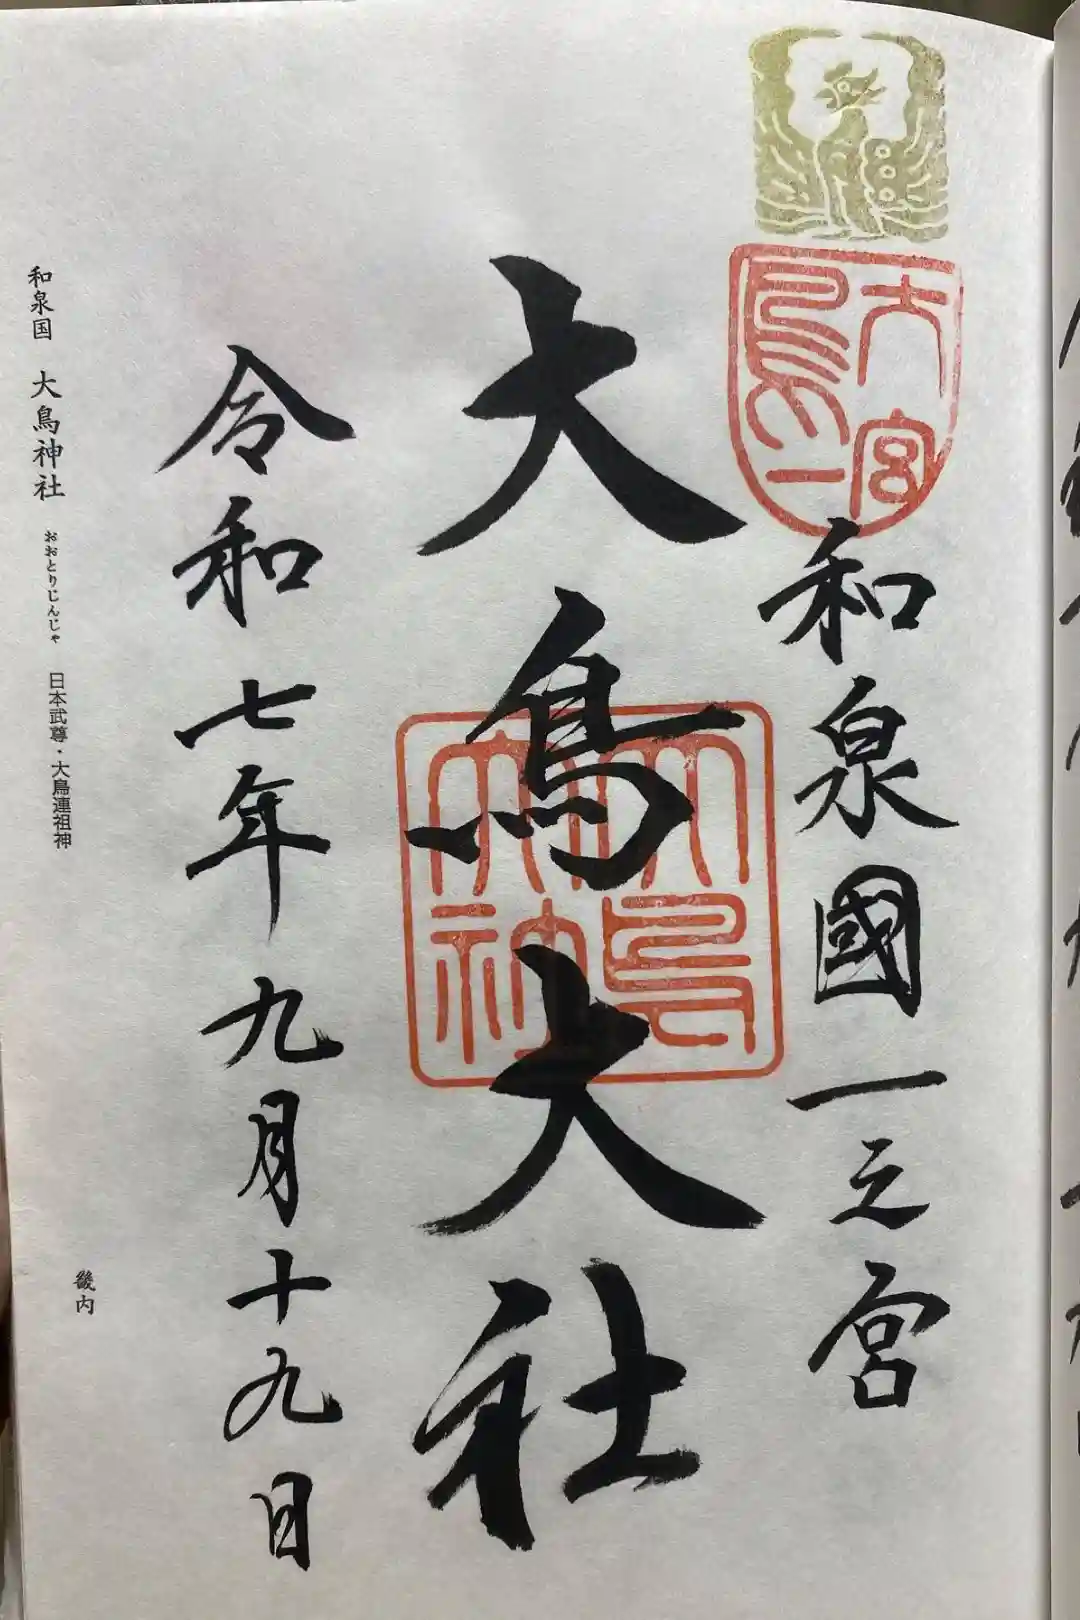 大鳥一宮
和泉國一之宮
大鳥大社
大鳥大社
令和七年九月十九日
和泉国 大鳥神社 おおとりじんじゃ 日本武尊・大鳥連祖神
畿内